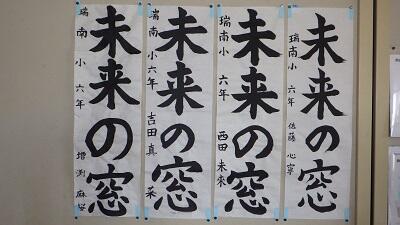 未来の窓
瑞南小 六年 佐藤 心寧
未来の窓
瑞南小 六年 西田 未來
未来の窓
瑞南小 六年 吉田 真菜
未来の窓
瑞南小 六年 増渕 麻